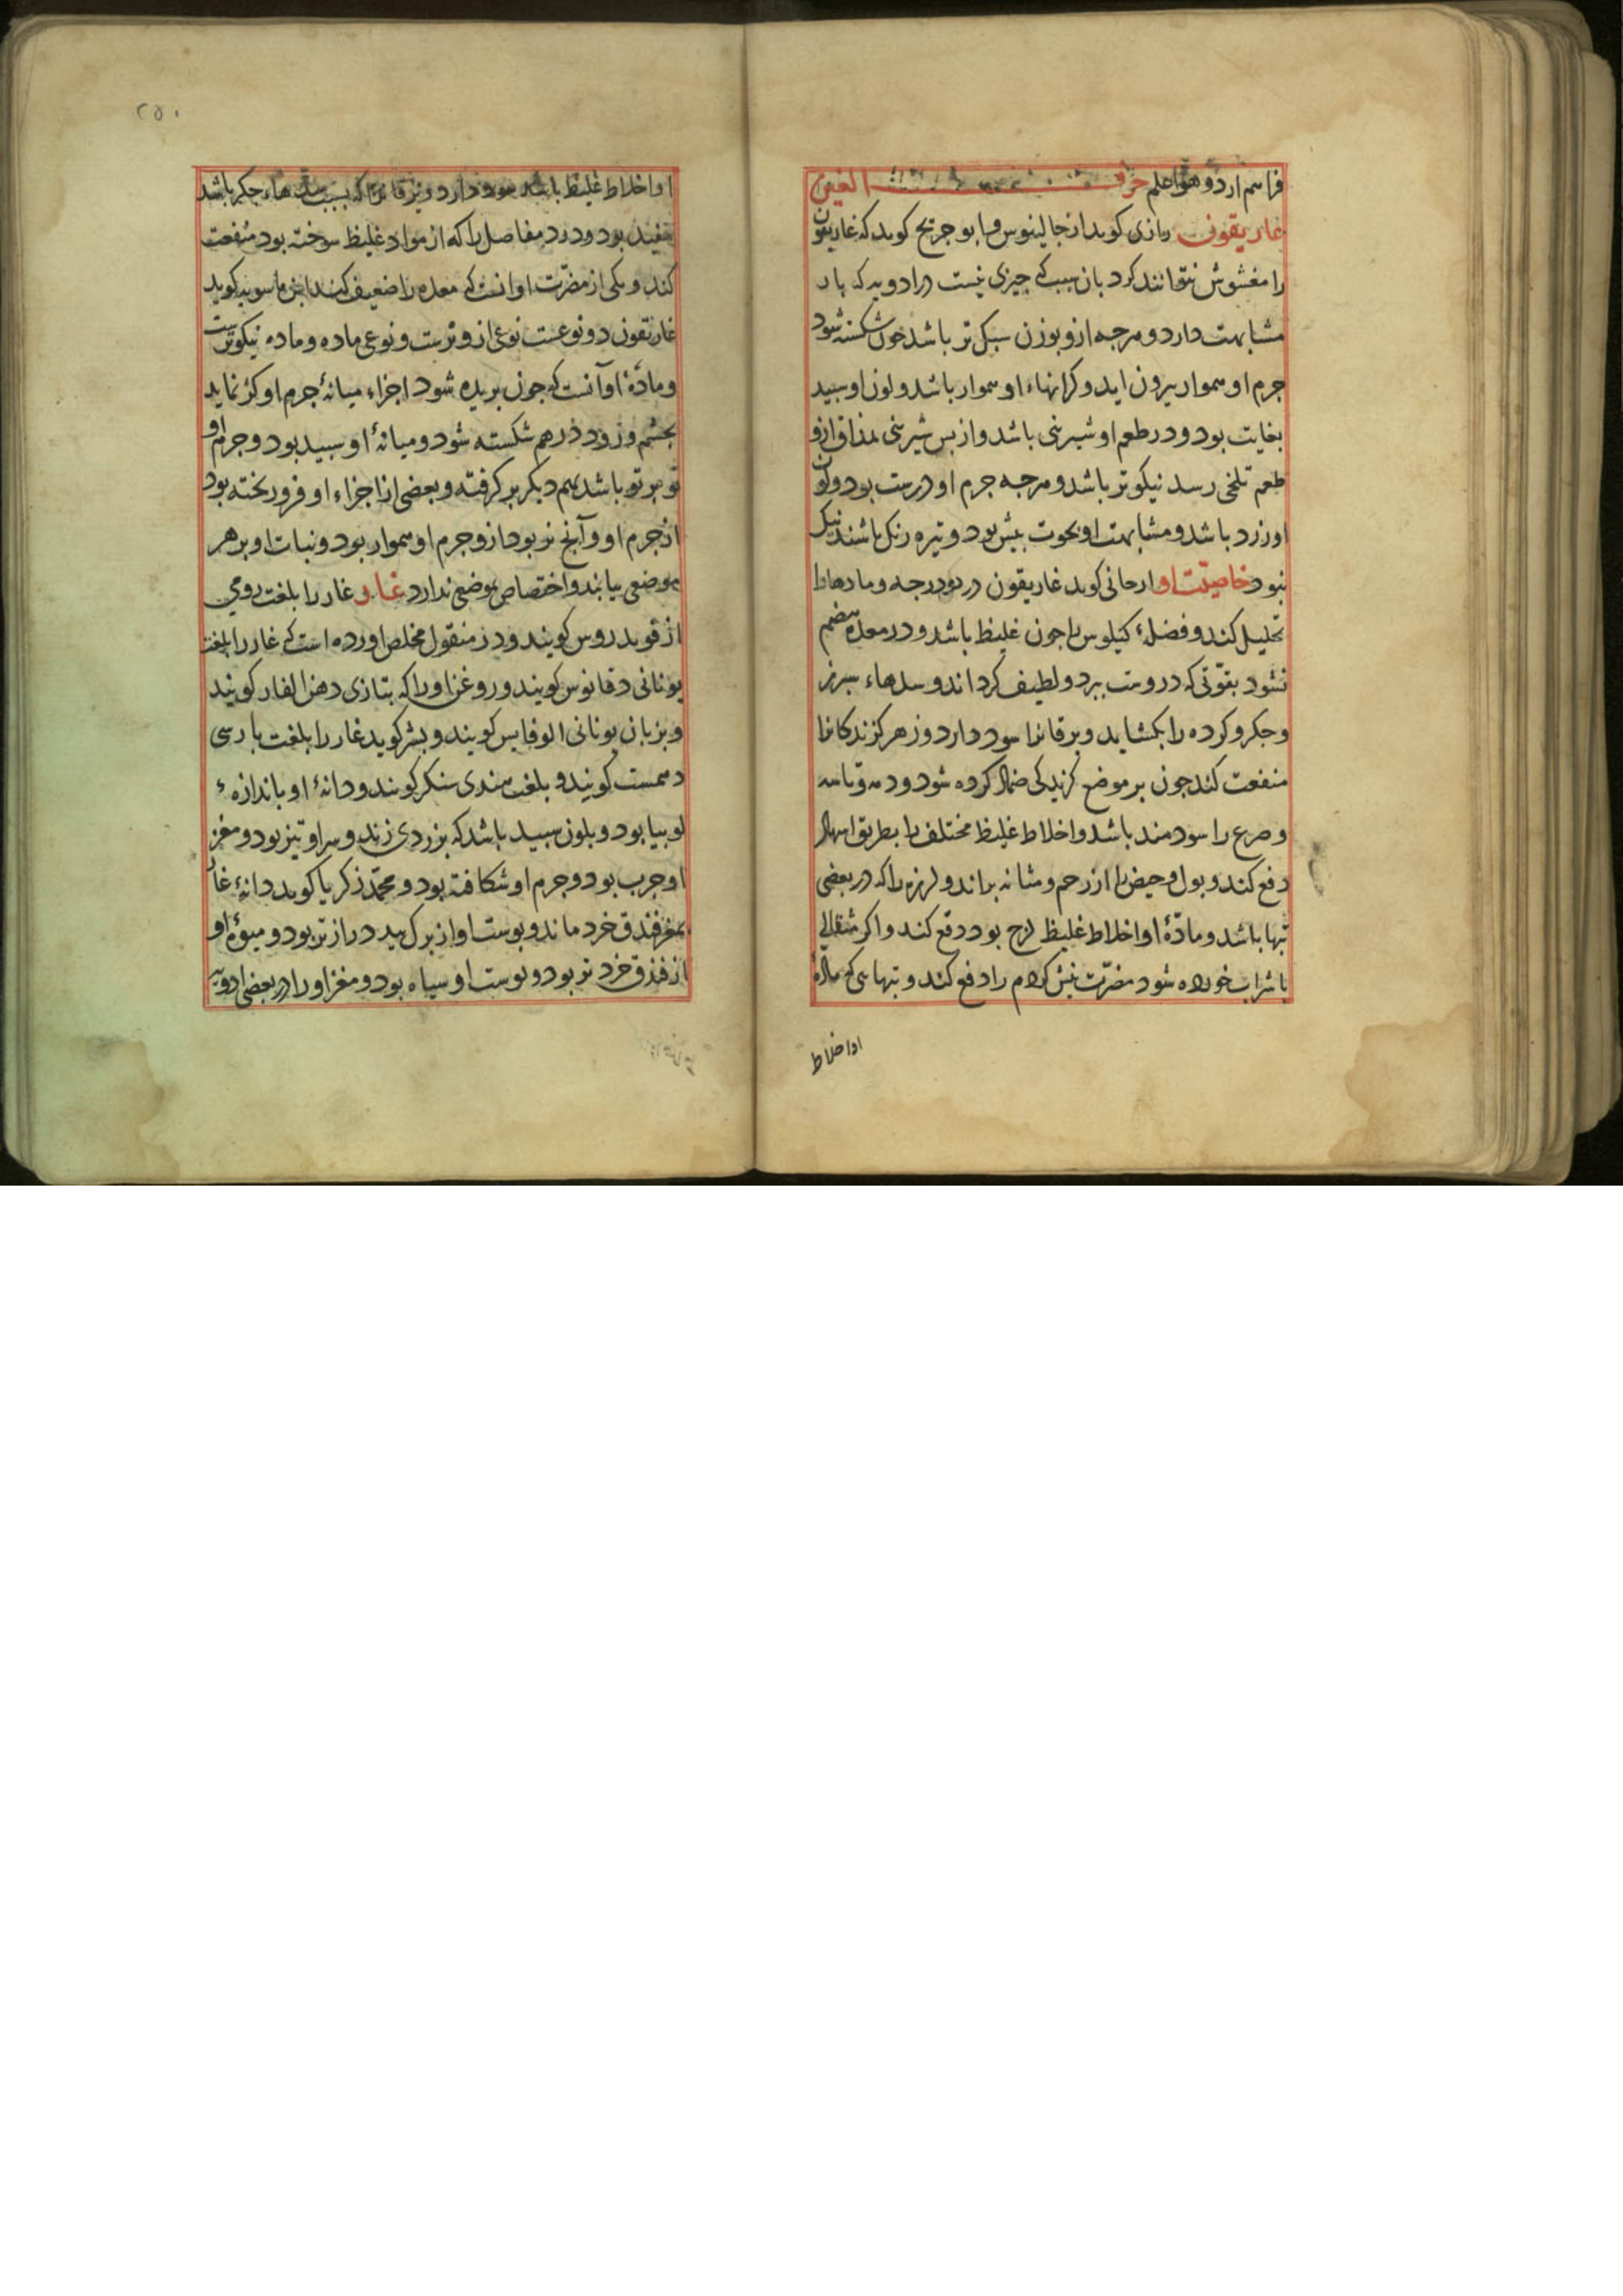 فراسم ارد و هواعلم حرف الغین
غاریقون رازی کوید از جالینوس و ابو جریح کوید که غاریقون
را مغشوش نتوانند کرد بان سبب کی چیزی نیست در ادویه که باد
مشابهت دارد و هرجه ازو بوزن سبک تر باشد جون شکسته شود
جرم او هموار بیرون اید و کرانهاء او هموار باشد و لون او سبید
بغایت بود و در طعم او شیرینی باشد و از بس شیرینی بمذاق ازو
طعم تلخی رسد نیکوتر باشد و هرجه جرم او درست بود و لون
او زرد باشد و مشابهت او بحوت بیش بود و تیره رنک باشد نیک
نبود خاصیت او ارجانی کوید غاریقون در دو درجه و مادهاء را
تحلیل کند و فضلهٔ کیلوس را جون غلیظ باشد و در معده هضم
نشود بقوتی که دروست ببرد و لطیف کرداند و سدهاء سبرز
و جکر و کرده را بکشاید و یرقانرا سود دارد و زهر کزندکانرا
منفعت کند جون بر موضع کزیدکی ضماد کرده شود و دمه و تاسه
و صرع را سودمند باشد و اخلاط غلیظ مختلف را بطریق اسهال
دفع کند و بول و حیض را از رحم و مثانه براند و لرزه را که در بعضی
تبها باشد و مادهٔ او اخلاط غلیظ لزج بود دفع کند و اکر مثقالی
با شراب خورده شود مضرت نیش کژدم را دفع کند و تبهاسی که مادهٔ
او اخلاط
۲۵۰
او اخلاط غلیظ باشد سود دارد و یرقانرا که بسبب سدهاء جکر باشد
مفید بود و درد مفاصل را که از مواد غلیظ سوخته بود منفعت
کند و یکی از مضرت او انست که معده را ضعیف کند ابن ماسویه کوید
غاریقون دو نوعست نوعی ازو نرست و نوعی ماده و ماده نیکوترست
و مادهٔ او آنست که جون بریده شود اجزاء میانهٔ جرم او کژ نماید
بجشم و زود در هم شکسته شود و میانهٔ او سبید بود و جرم او
تو بر تو باشد بهم دیکر بر کرفته و بعضی از اجزاء او فرو ریخته بود
از جرم او و آنج نر بود ازو جرم او هموار بود و نبات او بر هر
موضعی یابند و اختصاص بموضعی ندارد غار و غار را بلغت رومی
اذفوید روس کویند و در منقول مخلص اورده است که غار را بلغت
یونانی دقانوس کویند و روغن او را که بتازی دهن الغار کویند
و بزبان یونانی الوفایس کویند و بشر کوید غار را بلغت بارسی
دهمست کویند و بلغت هندی سنکر کویند و دانهٔ او باندازهٔ
لوبیا بود و بلون سبید باشد که بزردی زند و سر او تیز بود و مغز
او جرب بود و جرم او شکافته بود و محمد زکریا کوید دانهٔ غار
بمغز فندق خرد ماند و بوست او از برک بید دراز تر بود و میوهٔ او
از فندق خرد تر بود و بوست او سیاه بود و مغز او را در بعضی ادویه